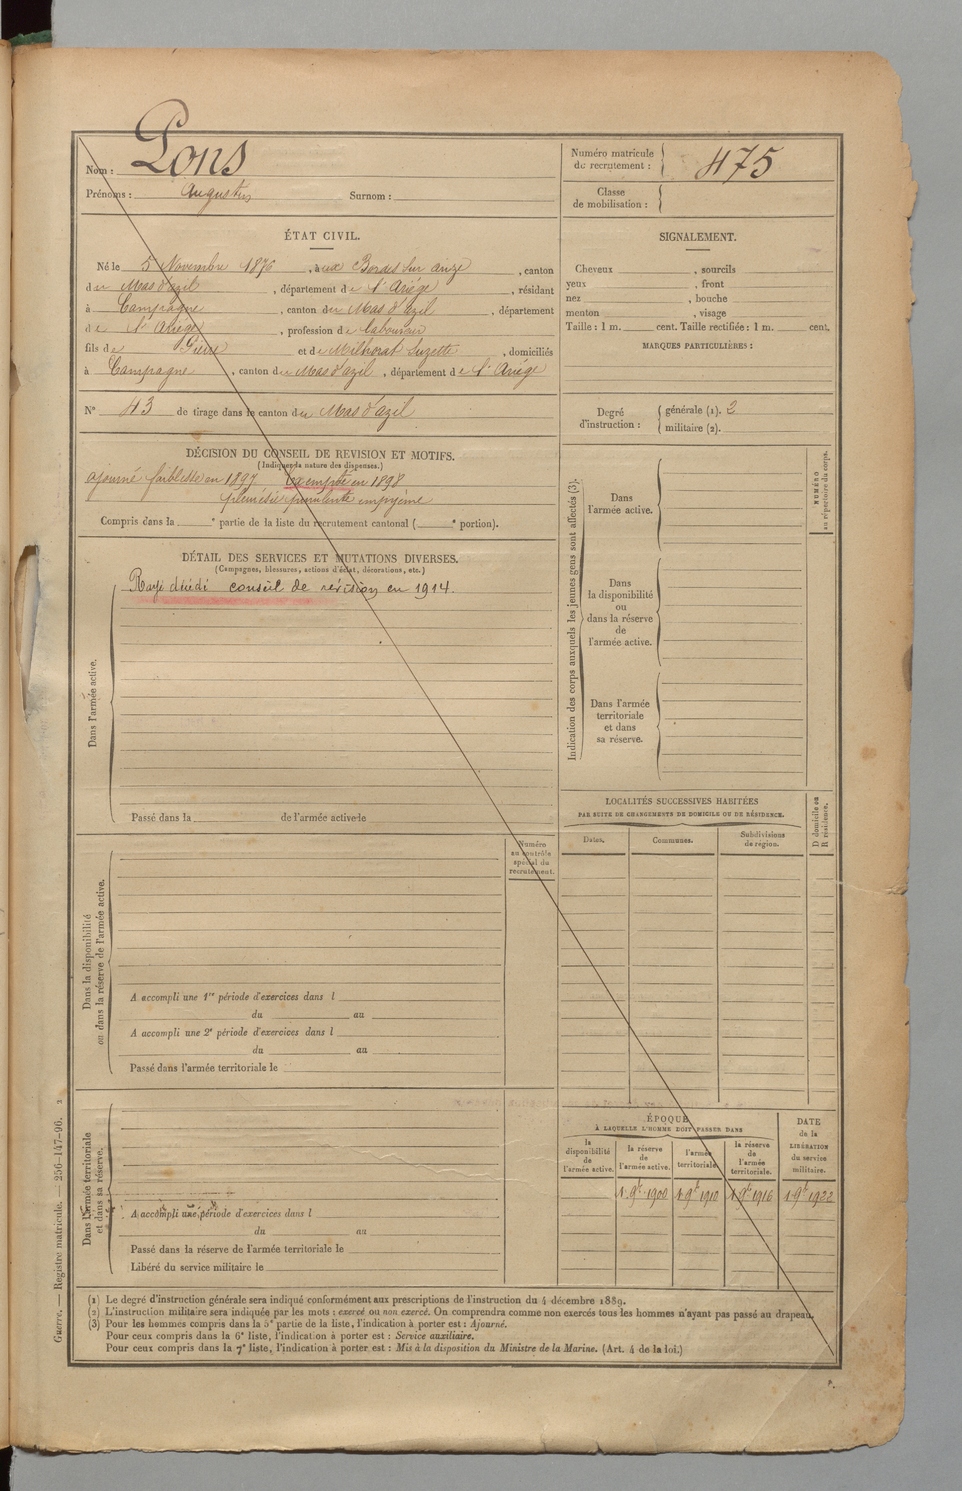 Nom : Pons
Prénoms : Augustin Surnom :
Numéro matricule
du recrutement : 475
Classe
de mobilisation :
ÉTAT CIVIL.
Né le 5 Novembre 1876, à aux Bordes sur arize, canton
du Mas d'azil, département de l'Ariège, résidant
à Campagne, canton du Mas d'azil, département
de l'Ariège, profession de laboureur
fils de Pierre et de Milhorat Suzette, domiciliés
à Campagne, canton du Mas d'azil, département de l'Ariége
N° 43 de tirage dans le canton du Mas d'azil
SIGNALEMENT.
Cheveux , sourcils
yeux , front
nez , bouche
menton , visage
Taille : 1 m. cent. Taille rectifiée : 1 m. cent.
MARQUES PARTICULIÈRES :
Degré
d'instruction :
générale (1). 2
militaire (2).
DÉCISION DU CONSEIL DE REVISION ET MOTIFS.
(Indiquer la nature des dispenses.)
ajourné faiblesse en 1897 exempté en 1898
pleurésie purulente empyème
Compris dans la e partie de la liste du recrutement cantonal ( e portion).
DÉTAIL DES SERVICES ET MUTATIONS DIVERSES.
(Campagnes, blessures, actions d'éclat, décorations, etc.)
Rayé décédé conseil de révision en 1914.
Dans l'armée active.
Passé dans la de l'armée active le
Indication des corps auxquels les jeunes gens sont affectés (3).
Dans
l'armée active.
Dans
la disponibilité
ou
dans la réserve
de
l'armée active.
Dans l'armée
territoriale
et dans
sa réserve.
NUMÉRO
au répertoire du corps.
LOCALITÉS SUCCESSIVES HABITÉES
PAR SUITE DE CHANGEMENTS DE DOMICILE OU DE RÉSIDENCE.
Dates. Communes. Subdivisions
de région.
D domicile ou
R résidence.
Numéro
au contrôle
spécial du
recrutement.
Dans la disponibilité
ou dans la réserve de l'armée active.
A accompli une 1re période d'exercices dans l
du au
A accompli une 2e période d'exercices dans l
du au
Passé dans l'armée territoriale le
Dans l'armée territoriale
et dans sa réserve.
A accompli une période d'exercices dans l
du au
Passé dans la réserve de l'armée territoriale le
Libéré du service militaire le
ÉPOQUE
À LAQUELLE L'HOMME DOIT PASSER DANS
la
disponibilité
de
l'armée active.
la réserve
de
l'armée active.
l'armée
territoriale.
la réserve
de
l'armée
territoriale.
DATE
de la
LIBÉRATION
du service
militaire.
1 9bre 1900 1 9bre 1910 1 9bre 1916 1 9bre 1922
(1) Le degré d'instruction générale sera indiqué conformément aux prescriptions de l'instruction du 4 décembre 1889.
(2) L'instruction militaire sera indiquée par les mots : exercé ou non exercé. On comprendra comme non exercés tous les hommes n'ayant pas passé au drapeau.
(3) Pour les hommes compris dans la 5e partie de la liste, l'indication à porter est : Ajourné.
Pour ceux compris dans la 6e liste, l'indication à porter est : Service auxiliaire.
Pour ceux compris dans la 7e liste, l'indication à porter est : Mis à la disposition du Ministre de la Marine. (Art. 4 de la loi.)
Guerre. — Registre matricule. — 256-147-96. 2